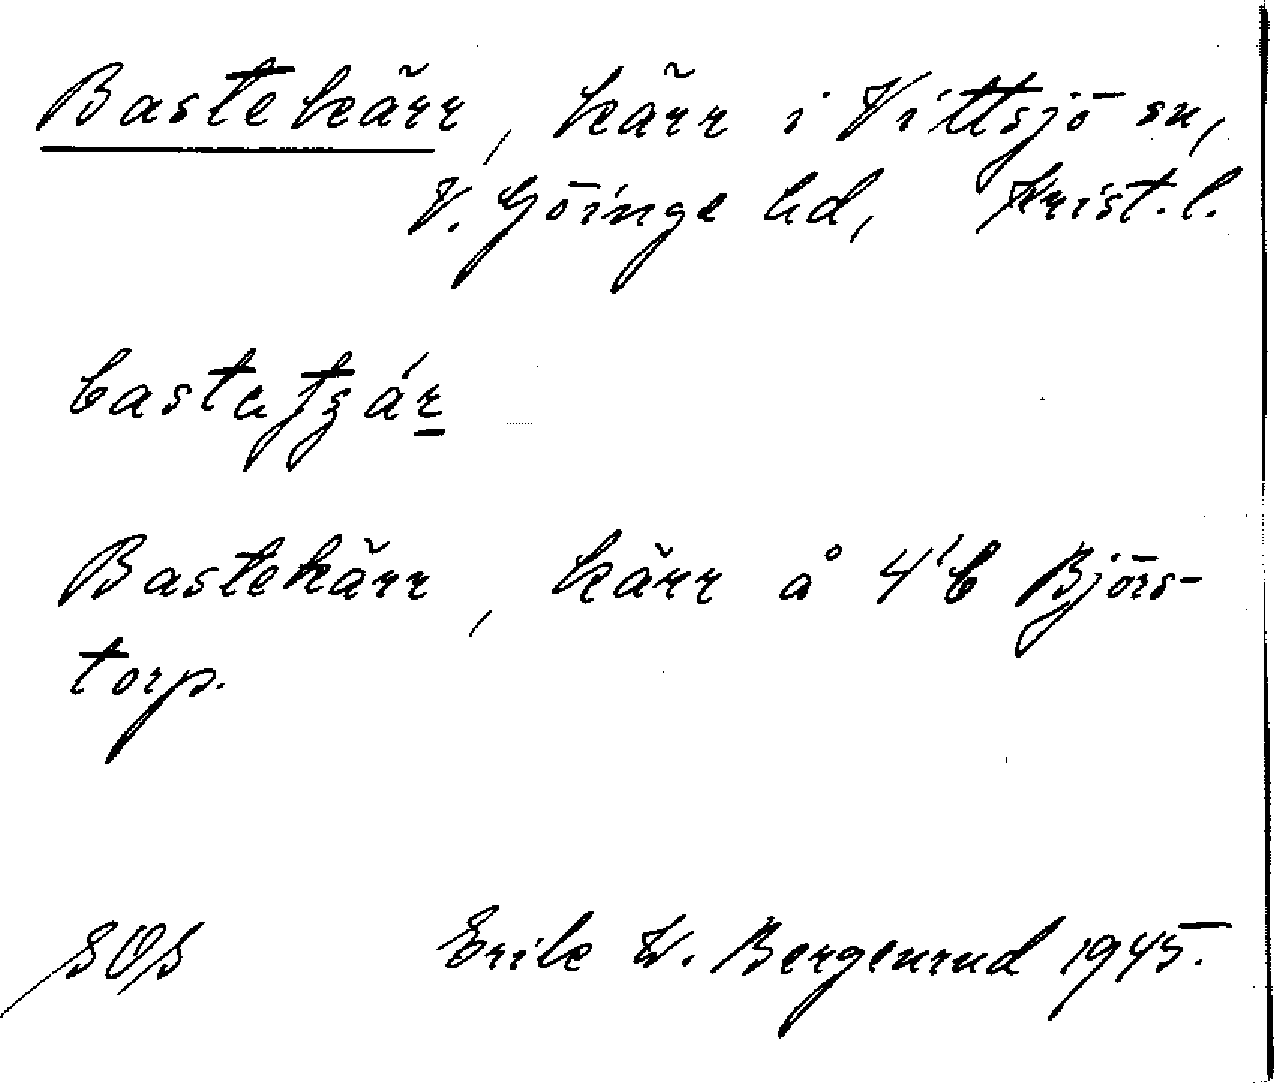 Bastekärr, kärr i Vittsjö sn,
V. Göinge hd, Krist. l.
Bastekärr, kärr å 4'b Björs-
torp.
SOS Erik W. Bergenrud 1945.